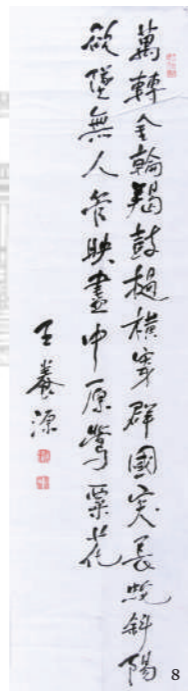 萬轉金輪羯鼓撾横穿群國突長蛇斜陽
欲墮無人管映盡中原鶯粟花
王養源
8